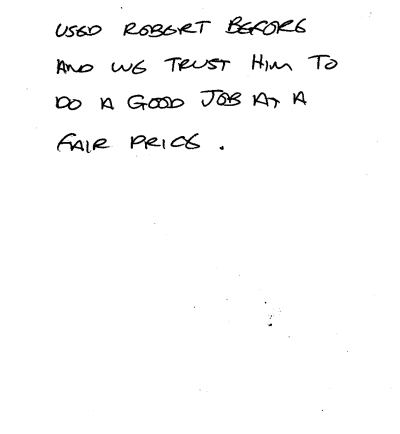 USED ROBERT BEFORE
AND WE TRUST HIM TO
DO A GOOD JOB AT A
FAIR PRICE.